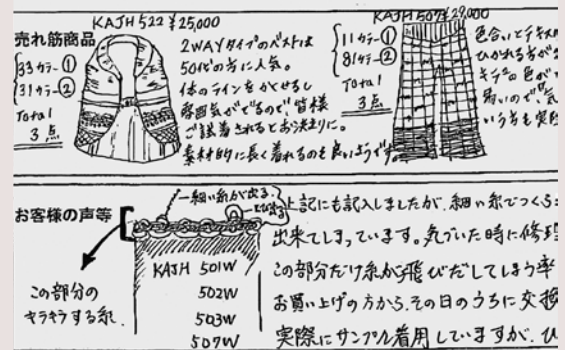 KAJH 522 ¥25,000
売れ筋商品
33カラー①
31カラー②
Total
3点
2WAYタイプのベストは
50代の方に人気。
体のラインをかくせるし
雰囲気がでるので、皆様
ご試着されるとお決まりに。
素材的に長く着れるのも良いようです
KAJH 507 ¥29,000
11カラー①
81カラー②
Total
3点
色合いとテキス
ひかれる方が
キラの色が
弱いので、気
いう方も実際
お客様の声等
細い糸が出る
この部分の
キラキラする糸.
KAJH 501W
502W
503W
507W
上記にも記入しましたが、細い糸でつくる
出来てしまっています。気づいた時に修理
この部分だけ糸が飛びだしてしまう率
お買い上げの方から、その日のうちに交換
実際にサンプル着用していますが、ひ